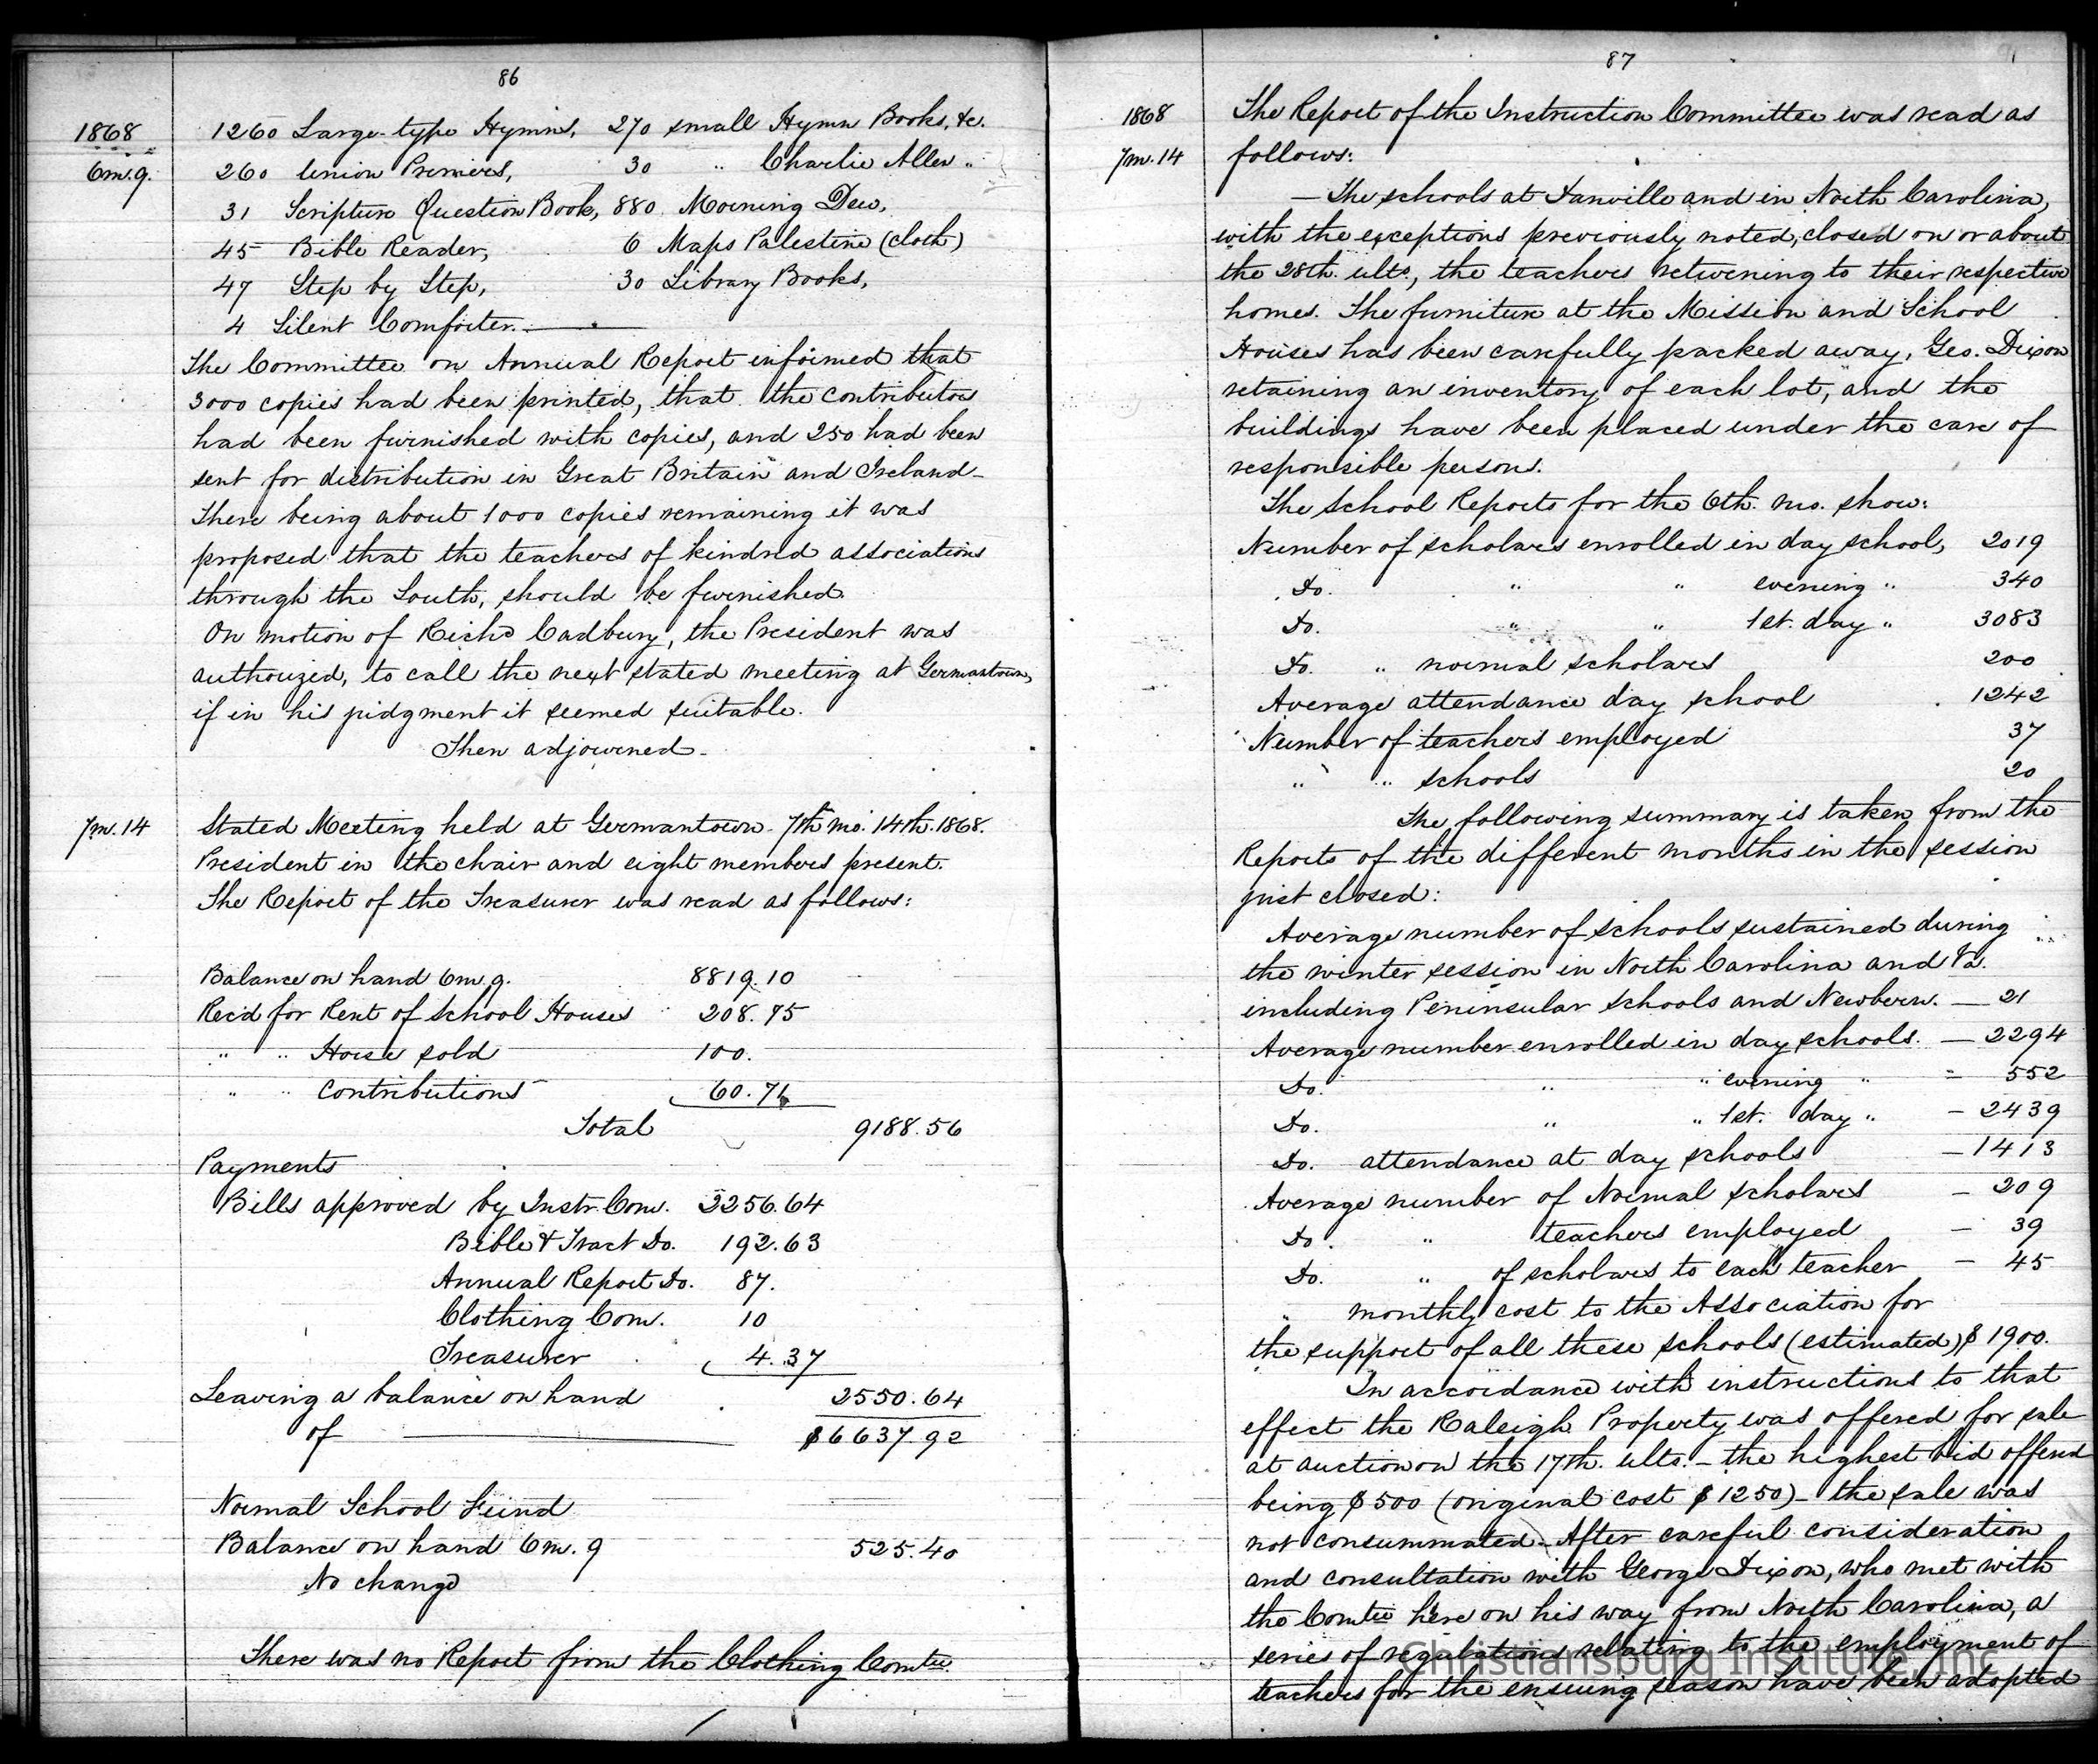 86
1868
6m.9.
1260 Large-type Hymns, 270 small Hymn Books, &c.
260 Union Primers, 30 " Charlie Allen "
31 Scripture Question Book, 880 Morning Dew,
45 Bible Reader, 6 Maps Palestine (cloth)
47 Step by Step, 30 Library Books,
4 Silent Comforter. —
The Committee on Annual Report informed that
3000 copies had been printed, that the contributors
had been furnished with copies, and 250 had been
sent for distribution in Great Britain and Ireland –
There being about 1000 copies remaining it was
proposed that the teachers of kindred associations
through the South, should be furnished.
On motion of Richd Cadbury, the President was
authorized, to call the next stated meeting at Germantown,
if in his judgment it seemed suitable.
Then adjourned –
7m.14
Stated Meeting held at Germantown. 7th mo. 14th. 1868.
President in the chair and eight members present.
The Report of the Treasurer was read as follows:
Balance on hand 6m.9. 8819.10
Rec'd for Rent of School Houses 208.75
" " Horse sold 100.
" " contributions 60.71
Total 9188.56
Payments
Bills approved by Instr. Com. 2256.64
Bible & Tract Do. 192.63
Annual Report Do. 87.
Clothing Com. 10
Treasurer 4.37
Leaving a balance on hand 2550.64
of — $6637.92
Normal School Fund
Balance on hand 6m.9 525.40
No change
There was no Report from the Clothing Comtee.
87
1868
7m.14
The Report of the Instruction Committee was read as
follows:
— The schools at Danville and in North Carolina,
with the exceptions previously noted, closed on or about
the 28th. ulto., the teachers returning to their respective
homes. The furniture at the Mission and School
Houses has been carefully packed away, Geo. Dixon
retaining an inventory of each lot, and the
buildings have been placed under the care of
responsible persons.
The School Reports for the 6th. mo. show:
Number of scholars enrolled in day school, 2019
Do. " " evening " 340
Do. " " 1st. day " 3083
Do. " normal scholars 200
Average attendance day school 1242
Number of teachers employed 37
" " schools 20
The following summary is taken from the
Reports of the different months in the session
just closed:
Average number of schools sustained during
the winter session in North Carolina and Va.
including Peninsular Schools and Newbern. — 21
Average number enrolled in day schools. — 2294
Do. " " evening " = 552
Do. " " 1st. day " – 2439
Do. attendance at day schools – 1413
Average number of Normal scholars – 209
Do. " teachers employed – 39
Do. " of scholars to each teacher – 45
" monthly cost to the Association for
the support of all these schools (estimated) $1900.
In accordance with instructions to that
effect the Raleigh Property was offered for sale
at auction on the 17th. ulto. – the highest bid offered
being $500 (original cost $1250) – the sale was
not consummated – After careful consideration
and consultation with George Dixon, who met with
the Comtee here on his way from North Carolina, a
series of regulations relating to the employment of
teachers for the ensuing season have been adopted
Christiansburg Institute, Inc